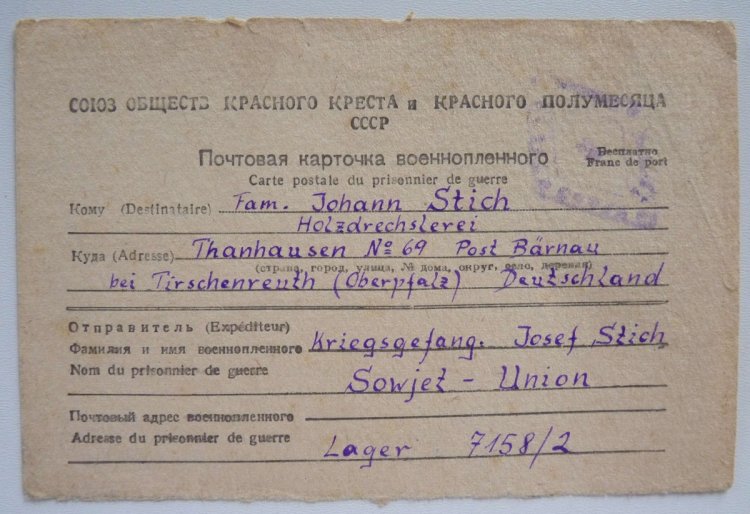 СОЮЗ ОБЩЕСТВ КРАСНОГО КРЕСТА и КРАСНОГО ПОЛУМЕСЯЦА
СССР
Почтовая карточка военнопленного
Бесплатно
Franc de port
Carte postale du prisonnier de guerre
Кому (Destinataire) Fam. Johann Stich
Holzdrechslerei
Куда (Adresse) Thanhausen № 69 Post Bärnau
(страна, город, улица, № дома, округ, село, деревня)
bei Tirschenreuth (Oberpfalz) Deutschland
Отправитель (Expéditeur)
Фамилия и имя военнопленного Kriegsgefang. Josef Stich
Nom du prisonnier de guerre
Sowjet - Union
Почтовый адрес военнопленного
Adresse du prisonnier de guerre
Lager 7158/2